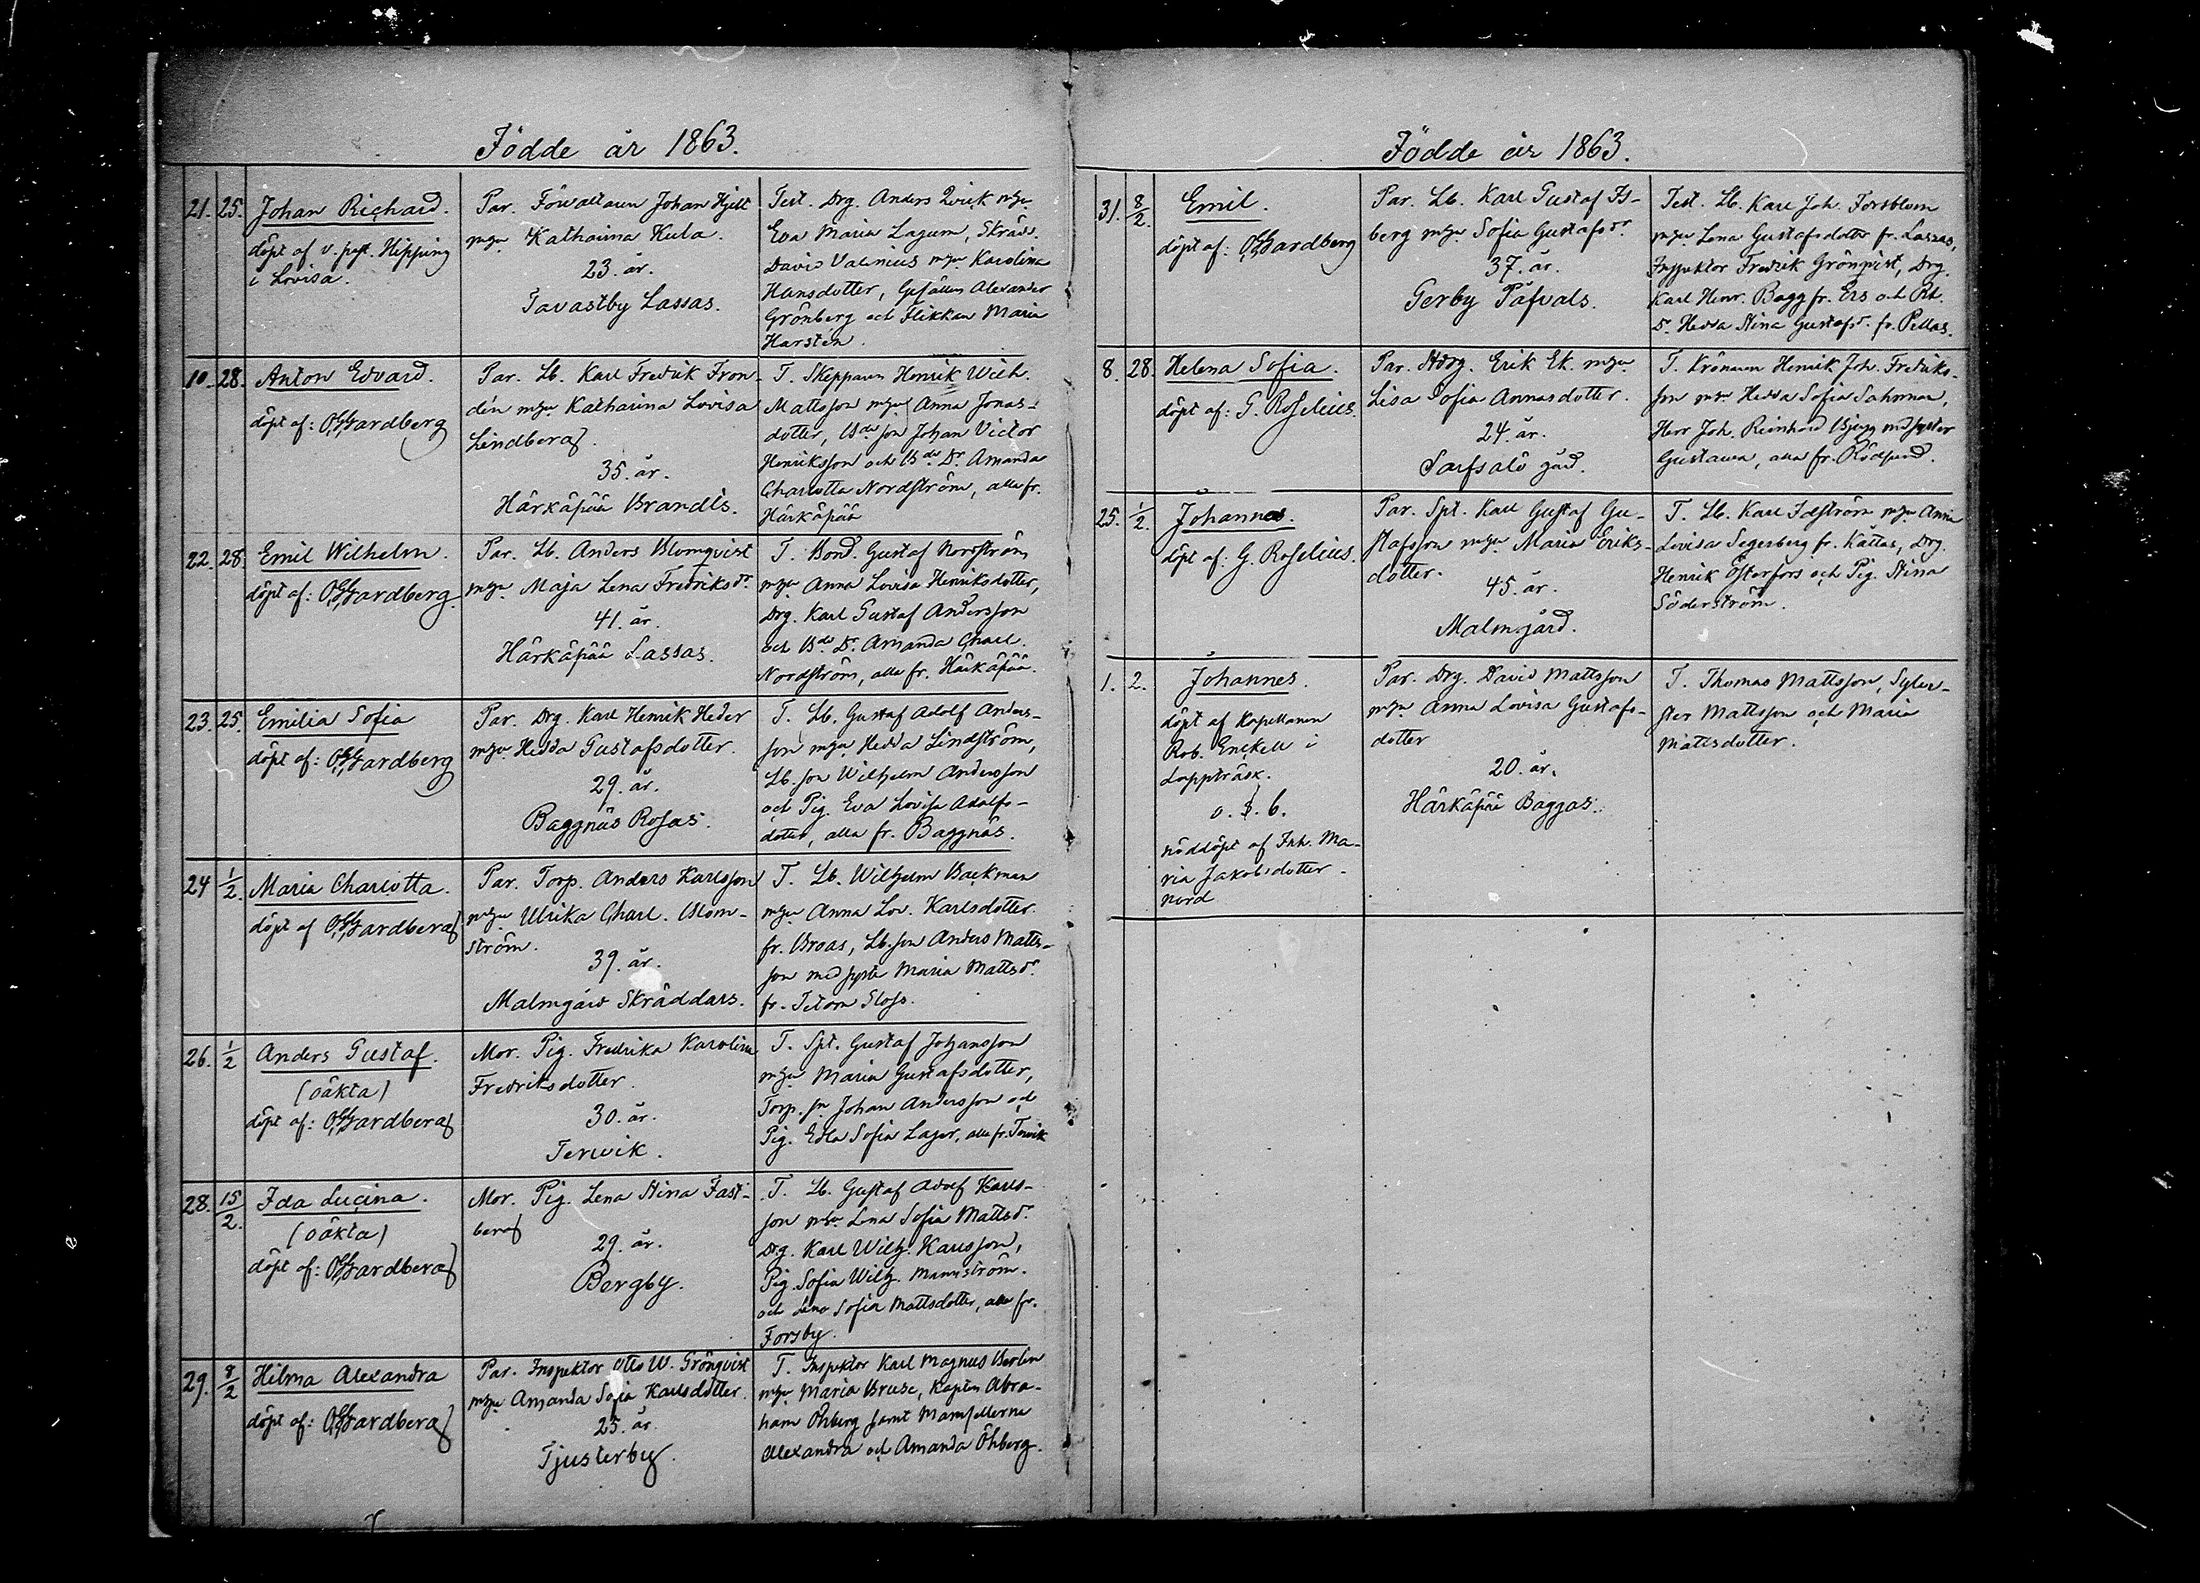 Födde år 1863.
21. 25. Johan Richard.
döpt af v. past. Hipping
i Lovisa.
Par. Förvaltaren Johan Hjelt
m. h.u. Katharina Kula.
23. år.
Tavastby Lassas.
Test. Drg. Anders Qvick
Eva Maria Lagum, Skrädd.
David Valenius Karolina
Hansdotter, Gesällen Alexander
Grönberg och Flickan Maria
Harsten.
10. 28. Anton Edvard.
döpt af: Gardberg
Par. Lb. Karl Fredrik Fron-
dén Katharina Lovisa
Lindberg.
35. år.
Härkäpää Brandis.
T. Skepparen Henrik Wilh.
Mattsson Anna Jonas-
dotter, Bde son Johan Victor
Henriksson och Bde Dr Amanda
Charlotta Nordström, alla fr.
Härkäpää
22. 28. Emil Wilhelm.
döpt af: Gardberg.
Par. Lb. Anders Blomqvist
Maja Lena Fredriksdr
41. år.
Härkäpää Lassas.
T. Bond. Gustaf Nordström
Anna Lovisa Henriksdotter,
Drg. Karl Gustaf Andersson
och Bde Dr Amanda Charl.
Nordström, alla fr. Härkäpää.
23. 25. Emilia Sofia
döpt af: Gardberg
Par. Drg. Karl Henrik Heder
Hedda Gustafsdotter.
29. år.
Baggnäs Rosas.
T. Lb. Gustaf Adolf Anders-
son Hedda Lindström,
Lb. son Wilhelm Andersson
och Pig. Eva Lovisa Adolfs-
dotter, alla fr. Baggnäs.
24 1/2. Maria Charlotta.
döpt af Gardberg
Par. Torp. Anders Karlsson
Ulrika Charl. Blom-
ström.
39. år.
Malmgård Skräddars.
T. Lb. Wilhelm Backman
Anna Lov. Karlsdotter
fr. Broas, Lb. son Anders Matts-
son med syster Maria Mattsdr
fr. Tetom Sloss.
26. 1/2 Anders Gustaf.
(oäkta)
döpt af: Gardberg
Mor. Pig. Fredrika Karolina
Fredriksdotter.
30. år.
Terwik.
T. Spt. Gustaf Johansson
Maria Gustafsdotter,
Torp. sn Johan Andersson och
Pig. Edla Sofia Lager, alla fr. Terwik
28. 15/2. Ida Lucina.
(oäkta)
döpt af: Gardberg
Mor. Pig. Lena Stina Fast-
berg
29. år.
Bergby.
T. Lb. Gustaf Adolf Karls-
son Lena Sofia Mattsdr
Drg. Karl Wilh. Karlsson,
Pig. Sofia Wilh. Mannström.
och Lena Sofia Mattsdotter, alla fr.
Forsby.
29. 8/2 Hilma Alexandra
döpt af: Gardberg
Par. Inspektor Otto W. Grönqvist
Amanda Sofia Karlsdotter.
25. år.
Tjusterby.
T. Inspektor Karl Magnus Berlin
Maria Bruse, Kapten Abra-
ham Öhberg samt Mamsellerna
Alexandra och Amanda Öhberg.
Födde år 1863.
31. 8/2. Emil.
döpt af: Gardberg
Par. Lb. Karl Gustaf Is-
berg Sofia Gustafsdr
37. år.
Gerby Påfvals.
Test. Lb. Karl Joh. Forsblom
Lena Gustafsdotter fr. Lassas,
Inspektor Fredrik Grönqvist, Drg.
Karl Henr. Bagg fr. Ers och Rt.
Dr Hedda Stina Gustafsdr. fr. Pellas.
8. 28. Helena Sofia.
döpt af: G. Roselius.
Par. Erik Ek.
Lisa Sofia Annasdotter.
24. år.
Sarfsalö gård.
T. Krönaren Henrik Joh. Fredriks-
son Hedda Sofia Sahman,
Herr Joh. Reinhold Bjugg med syster
Gustawa, alla fr. Rödsund.
25. 1/2. Johannes.
döpt af: G. Roselius.
Par. Spt. Karl Gustaf Gu-
stafsson Maria Eriks-
dotter.
45. år.
Malmgård.
T. Lb. Karl Idström Anna
Lovisa Segersberg fr. Kattas, Drg.
Henrik Österfors och Pig. Stina
Söderström.
1. 2. Johannes.
döpt af Kapellanen
Rob. Enckell i
Lappträsk.
o. s. 6.
nöddöpt af Inh. Ma-
ria Jakobsdotter
Nord
Par. Drg. David Mattsson
Anna Lovisa Gustafs-
dotter
20. år.
Härkäpää Baggas.
T. Thomas Mattsson, Sylve-
ster Mattsson och Maria
Mattsdotter.